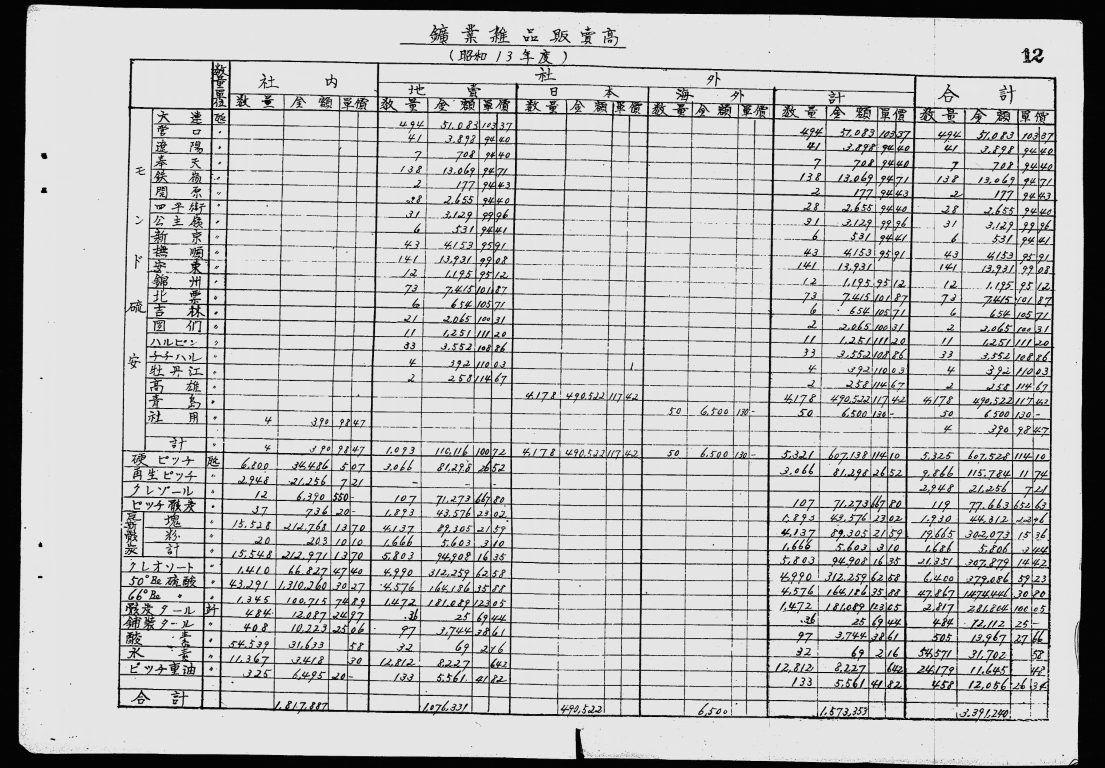 鑛業雑品販賣高
(昭和13年度)
12
数量單位 社内 社外 合計
地賣 日本 海外 計
数量 金額 單價 数量 金額 單價 数量 金額 單價 数量 金額 單價 数量 金額 單價 数量 金額 單價
モンド硫安
大連 瓲 494 51,083 103 37 494 51,083 103 37 494 51,083 103 37
営口 〃 41 3,898 94 40 41 3,898 94 40 41 3,898 94 40
遼陽 〃 7 708 94 40 7 708 94 40 7 708 94 40
奉天 〃 138 13,069 94 71 138 13,069 94 71 138 13,069 94 71
鉄嶺 〃 2 177 94 43 2 177 94 43 2 177 94 43
開原 〃 28 2,655 94 40 28 2,655 94 40 28 2,655 94 40
四平街 〃 31 3,129 99 96 31 3,129 99 96 31 3,129 99 96
公主嶺 〃 6 531 94 41 6 531 94 41 6 531 94 41
新京 〃 43 4,153 95 91 43 4,153 95 91 43 4,153 95 91
撫順 〃 141 13,931 99 08 141 13,931 141 13,931 99 08
安東 〃 12 1,195 95 12 12 1,195 95 12 12 1,195 95 12
錦州 〃 73 7,415 101 87 73 7,415 101 87 73 7,415 101 87
北票 〃 6 654 105 71 6 654 105 71 6 654 105 71
吉林 〃 21 2,065 100 31 2 2,065 100 31 2 2,065 100 31
図們 〃 11 1,251 111 20 11 1,251 111 20 11 1,251 111 20
ハルピン 〃 33 3,552 108 86 33 3,552 108 86 33 3,552 108 86
チチハル 〃 4 392 110 03 4 392 110 03 4 392 110 03
牡丹江 〃 2 258 114 67 2 258 114 67 2 258 114 67
高雄 〃 4,178 490,522 117 42 4,178 490,522 117 42 4,178 490,522 117 42
青島 〃 50 6,500 130 - 50 6,500 130 - 50 6,500 130 -
社用 〃 4 390 98 47 4 390 98 47
計 〃 4 390 98 47 1,093 110,116 100 72 4,178 490,522 117 42 50 6,500 130 - 5,321 607,138 114 10 5,325 607,528 114 10
硬ピッチ 瓲 6,800 34,486 5 07 3,066 81,298 26 52 3,066 81,298 26 52 9,866 115,784 11 74
再生ピッチ 〃 2,948 21,256 7 21 - - - 2,948 21,256 7 21
クレゾール 〃 12 6,390 550 - 107 71,273 667 80 107 71,273 667 80 119 77,663 652 63
ピッチ骸炭 〃 37 736 20 - 1,893 43,576 23 02 1,893 43,576 23 02 1,930 44,312 22 96
骸炭 塊 〃 15,528 212,768 13 70 4,137 89,305 21 59 4,137 89,305 21 59 19,665 302,073 15 36
粉 〃 20 203 10 10 1,666 5,603 3 10 1,666 5,603 3 10 1,686 5,806 3 44
計 〃 15,548 212,971 13 70 5,803 94,908 16 35 5,803 94,908 16 35 21,351 307,879 14 42
クレオソート 〃 1,410 66,827 47 40 4,990 312,259 62 58 4,990 312,259 62 58 6,400 379,086 59 23
50°Bé硫酸 〃 43,291 1,310,260 30 27 4,576 164,186 35 88 4,576 164,186 35 88 47,867 1,474,446 30 80
66°Bé 〃 〃 1,345 100,715 74 89 1,472 181,089 123 05 1,472 181,089 123 05 2,817 281,804 100 05
骸炭タール 〃 484 12,087 24 97 .36 25 69 44 .36 25 69 44 484 12,112 25 -
舗装タール 〃 408 10,223 25 06 97 3,744 38 61 97 3,744 38 61 505 13,967 27 66
酸素 〃 54,539 31,633 58 32 69 2 16 32 69 2 16 54,571 31,702 58
水素 〃 11,367 3,418 30 12,812 8,227 642 12,812 8,227 642 24,179 11,645 48
ピッチ重油 〃 325 6,495 20 - 133 5,561 41 82 133 5,561 41 82 458 12,056 26 34
合計 1,817,887 1,076,331 490,522 6,500 1,573,353 3,391,240